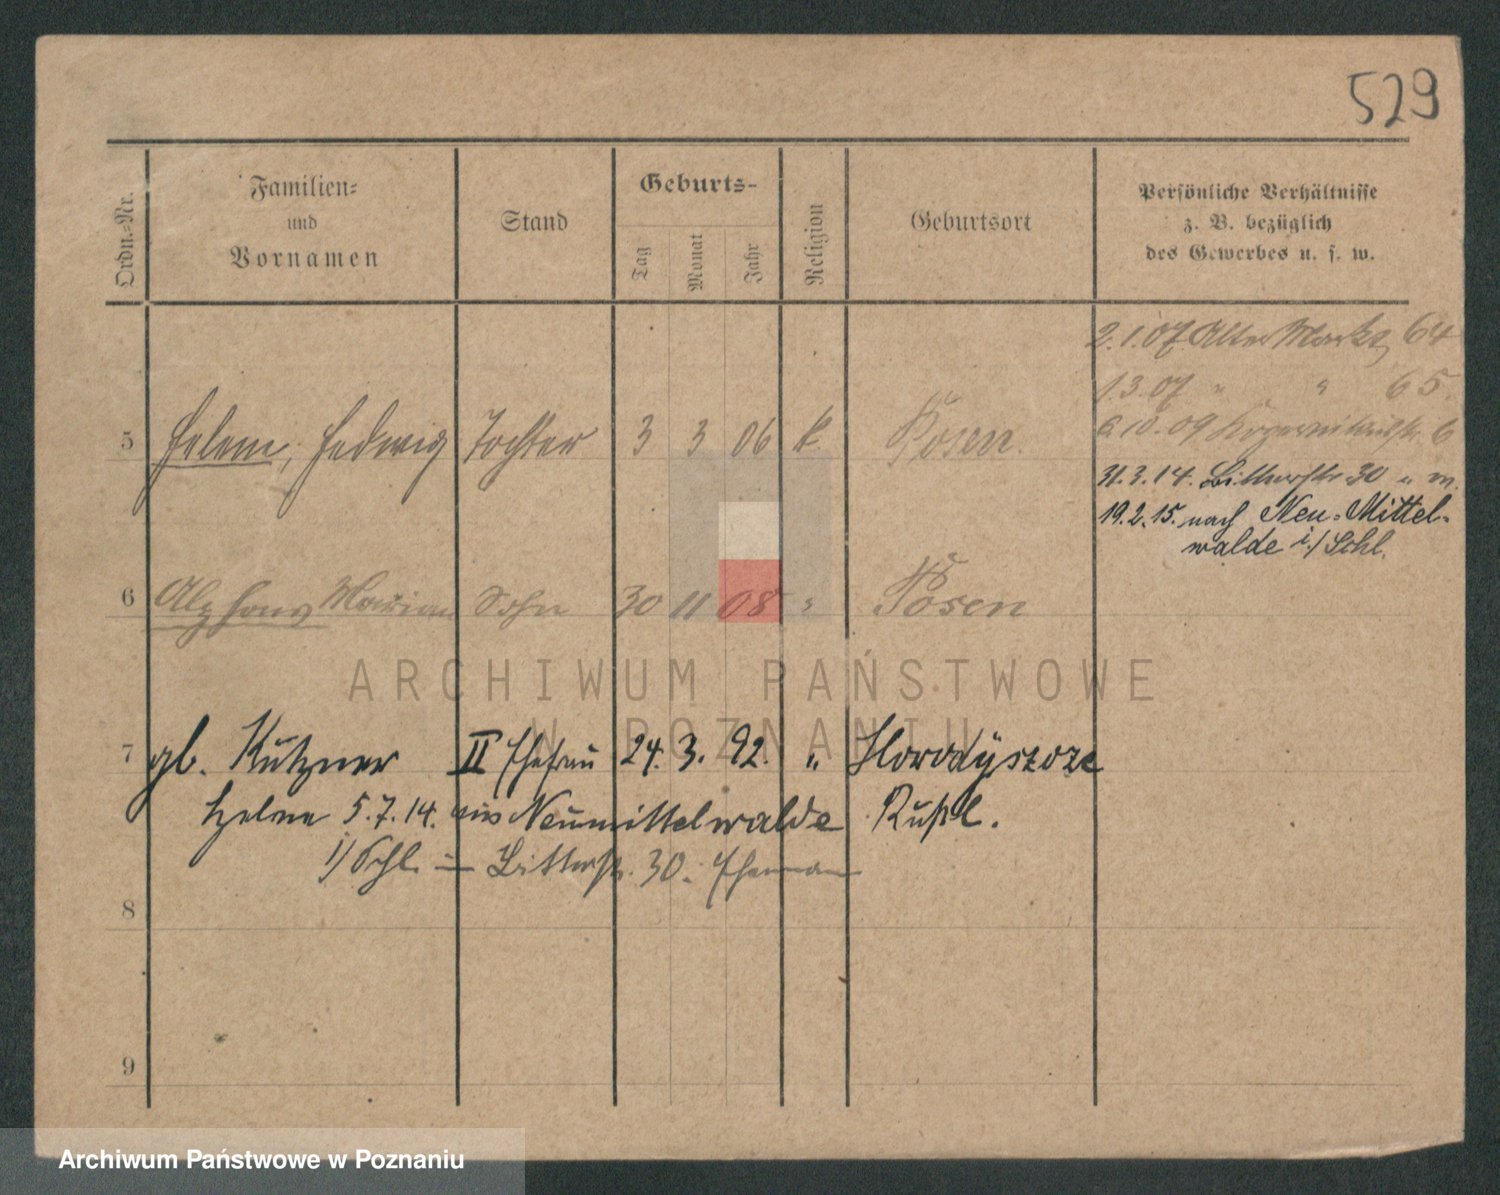 529
Ordn.-Nr.
Familien-
und
Vornamen
Stand
Geburts-
Tag
Monat
Jahr
Religion
Geburtsort
Persönliche Verhältnisse
z. B. bezüglich
des Gewerbes u. s. w.
2.1.07 Alter Markt 64
1.3.07 " " 65.
6.10.09 6
5 Helene, Hedwig Tochter 3 3 06 k. Posen.
31.3.14. Bitterstr 30
19.2.15. nach Neu-Mittel-
walde i/Schl.
6 Alphons Marian Sohn 30 11 08 " Posen
ARCHIWUM PAŃSTWOWE
W POZNANIU
7 gb. Kutzner II Ehefrau 24. 3. 92. " Horodyszcze
Helene 5.7.14. aus Neumittelwalde Rußl.
i/Schl. = Bitterstr. 30. Ehemann
8
9
Archiwum Państwowe w Poznaniu